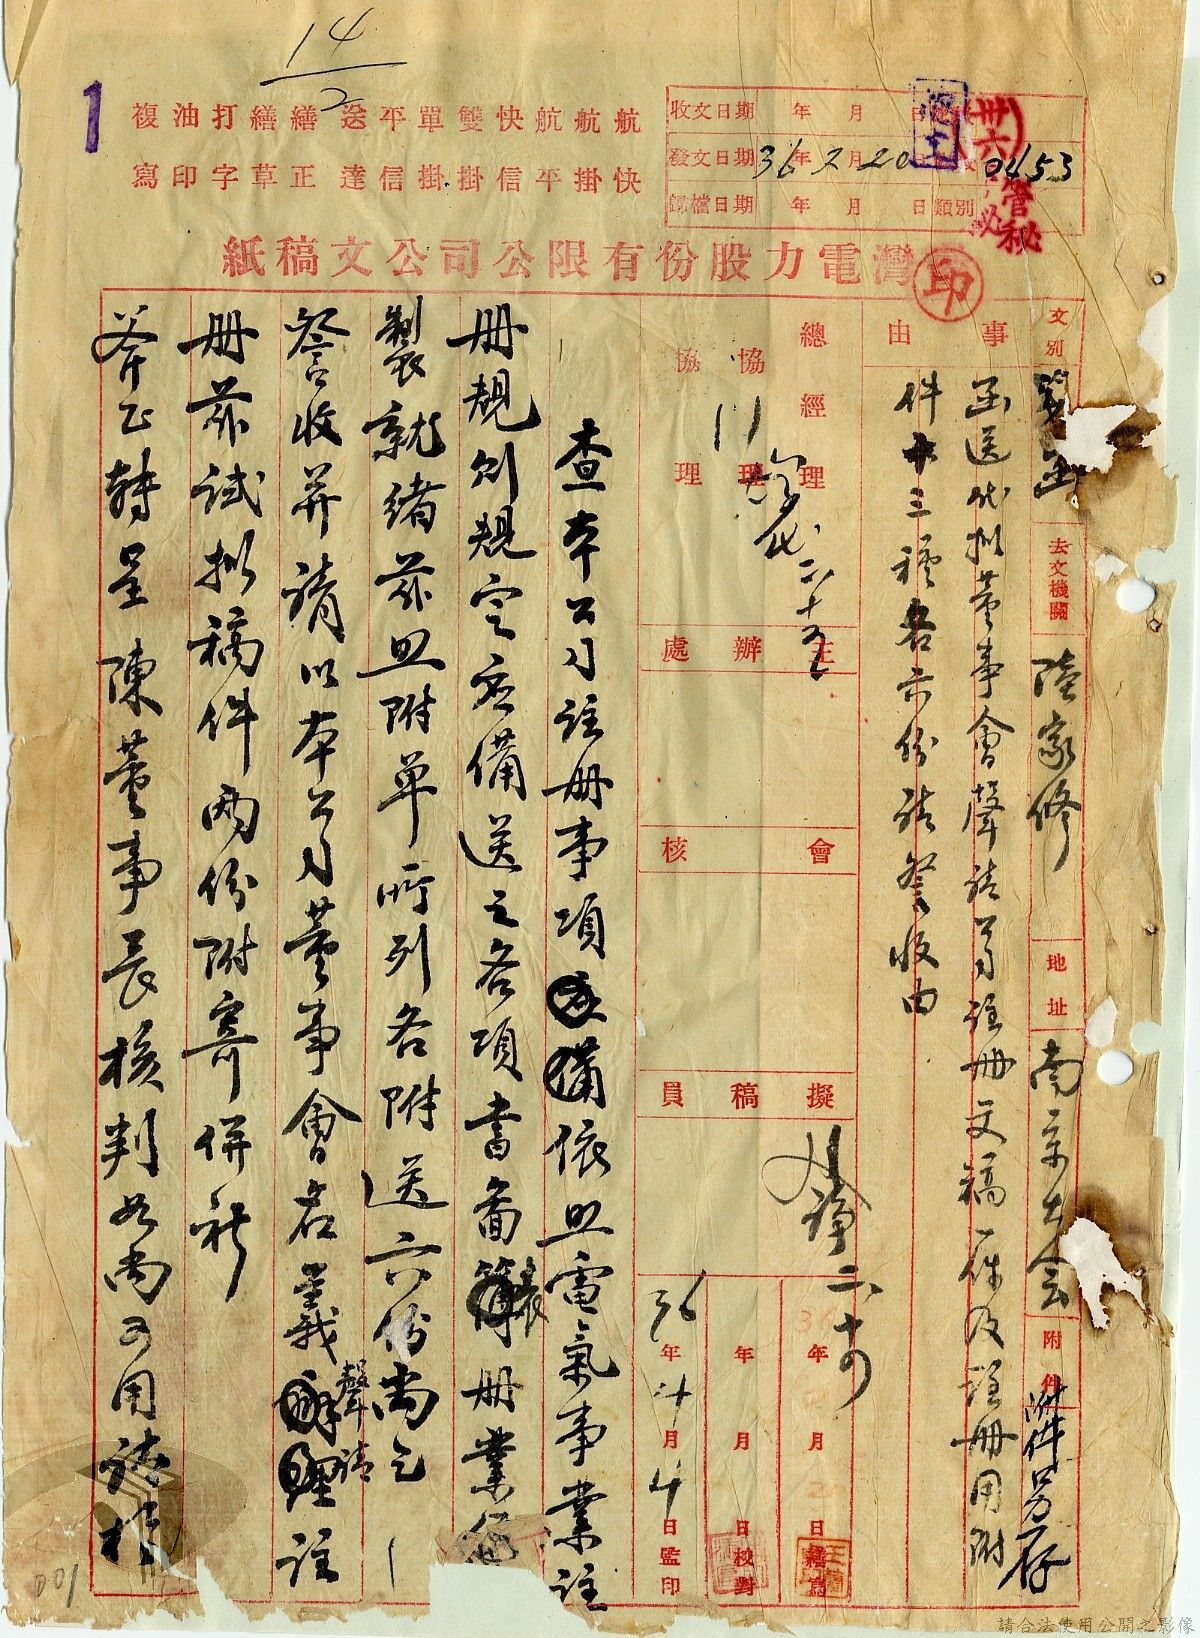 14/2
1
航 航 航 快 雙 單 平 送 繕 繕 打 油 複
快 掛 平 信 掛 掛 信 達 正 草 字 印 寫
收文日期 年 月 日
發文日期 36年2月20 0453
歸檔日期 年 月 日 類別
卅六
管秘
灣電力股份有限公司公文稿紙
印
文別 箋函 去文機關 陸家修 地址 南京大会 附件 附件另存
事由
函送代拟董事會聲請另註册文稿一件及註册用附
件十三種各六份請詧收由
總經理
協理
協理
主辦處
會核
擬稿員
36年 月 日 繕寫
年 月 日 校對
36年 月 日 監印
查本公司註册事項依照電氣事業註
册規則規定应備送之各項書面表册業經
製就緒茲照附单所列各附送六份尚乞
詧收并請以本公司董事會名義聲請註
册茲試拟稿件两份附寄併祈
斧正轉呈陳董事長核判如尚可用請
001
請合法使用公開之影像